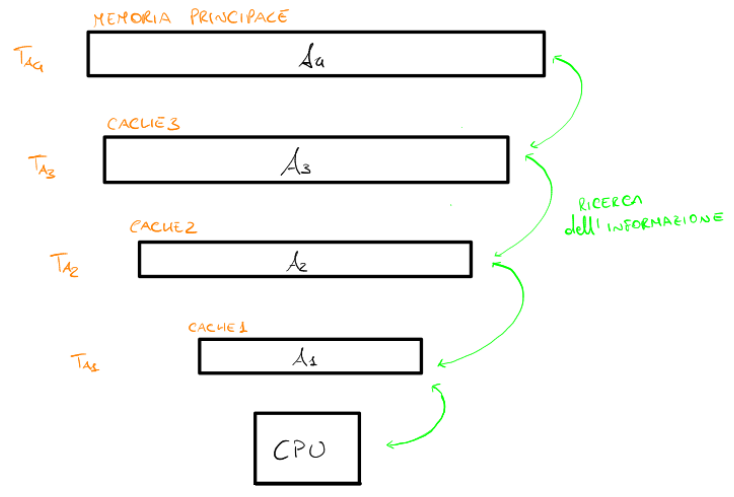 MEMORIA PRINCIPALE
TA4
A4
CACHE3
TA3
A3
RICERCA
dell'INFORMAZIONE
CACHE2
TA2
A2
CACHE1
TA1
A1
CPU